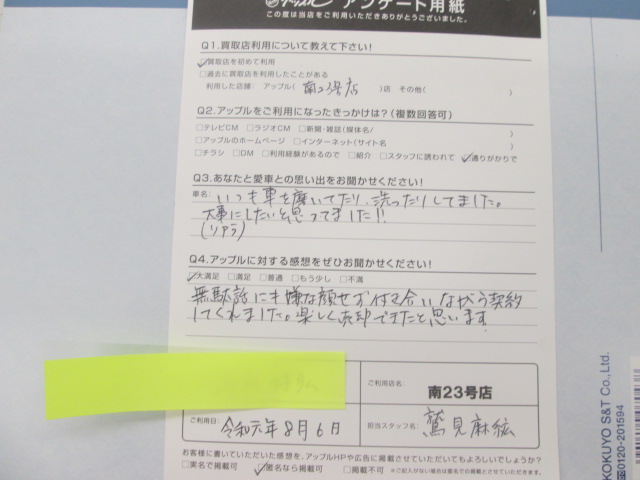 アンケート用紙
この度は当店をご利用いただきありがとうございました。
Q1.買取店利用について教えて下さい!
☑買取店を初めて利用
□過去に買取店を利用したことがある
利用した店舗: アップル( 南23号店 )店 その他( )
Q2.アップルをご利用になったきっかけは?(複数回答可)
□テレビCM □ラジオCM □新聞・雑誌(媒体名/ )
□アップルのホームページ □インターネット(サイト名 )
□チラシ □DM □利用経験があるので □紹介 □スタッフに誘われて ☑通りがかりで
Q3.あなたと愛車との思い出をお聞かせください!
車名: いつも車を磨いてたり、洗ったりしてました。
大事にしたいと思ってました!!
Q4.アップルに対する感想をぜひお聞かせください!
☑大満足 □満足 □普通 □もう少し □不満
無駄話にも嫌な顔せず付き合いながら契約
してくれました。楽しく売却できたと思います
ご利用店名: 南23号店
ご利用日: 令和元年8月6日 担当スタッフ名: 鷲見麻紘
お客様に書いていただいた感想を、アップルHPや広告に掲載させていただいてもよろしいでしょうか?
□実名で掲載可 ☑匿名なら掲載可 □掲載不可 ※ご記入がない場合は匿名での掲載とさせていただきます。
KOKUYO S&T Co., Ltd.
0120-201594